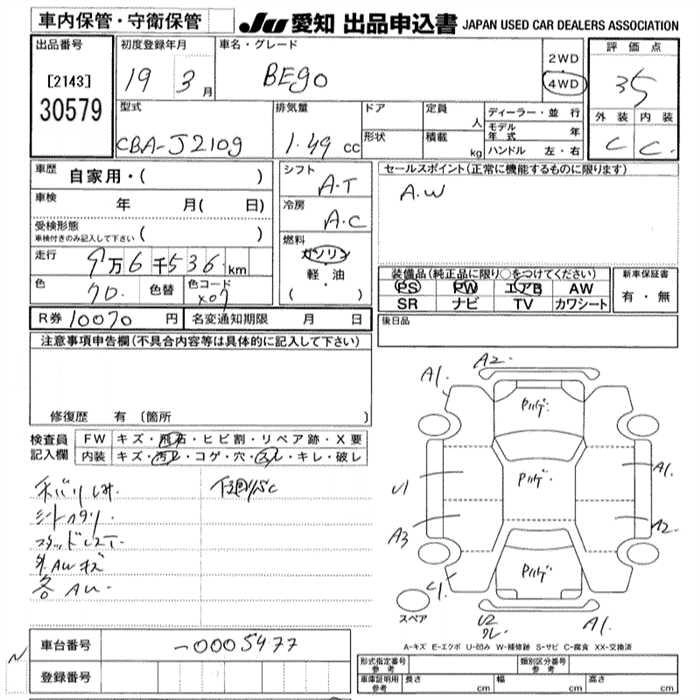 車内保管・守衛保管 JU 愛知 出品申込書 JAPAN USED CAR DEALERS ASSOCIATION
出品番号 初度登録年月 車名・グレード 2WD 評価点
[2143] 19 3月 BEgo 4WD 35
30579 型式 排気量 ドア 定員 人 ディーラー・並行 外装 内装
CBA-J210g 1.49 cc 形状 積載 kg モデル年式 年 C C
ハンドル 左・右
車歴 自家用・( ) シフト A-T セールスポイント(正常に機能するものに限ります)
車検 年 月( 日) 冷房 A.C A.W
受検形態
車検付きのみ記入して下さい ( ) 燃料
走行 9万6千536km ガソリン 装備品(純正品に限り○をつけてください) 新車保証書
色 クロ. 色替 色コード X07 軽・油 PS PW エアB AW 有・無
( ・ ) SR ナビ TV カワシート
R券 10070 円 名変通知期限 月 日 後日品
注意事項申告欄(不具合内容等は具体的に記入して下さい)
A1. A2.
修復歴 有 〔箇所 〕
検査員 FW キズ・飛石・ヒビ割・リペア跡・X要
記入欄 内装 キズ・汚レ・コゲ・穴・スレ・キレ・破レ
U1 A1.
A3 A2
A1.
外AWキズ
各AU.
スペア U2
A-キズ E-エクボ U-凹み W-補修跡 S-サビ C-腐食 XX-交換済
N 車台番号 -0005477
登録番号
形式指定番号 参考 類別区分番号 参考
車庫証明用 参考 長さ cm 幅 cm 高さ cm